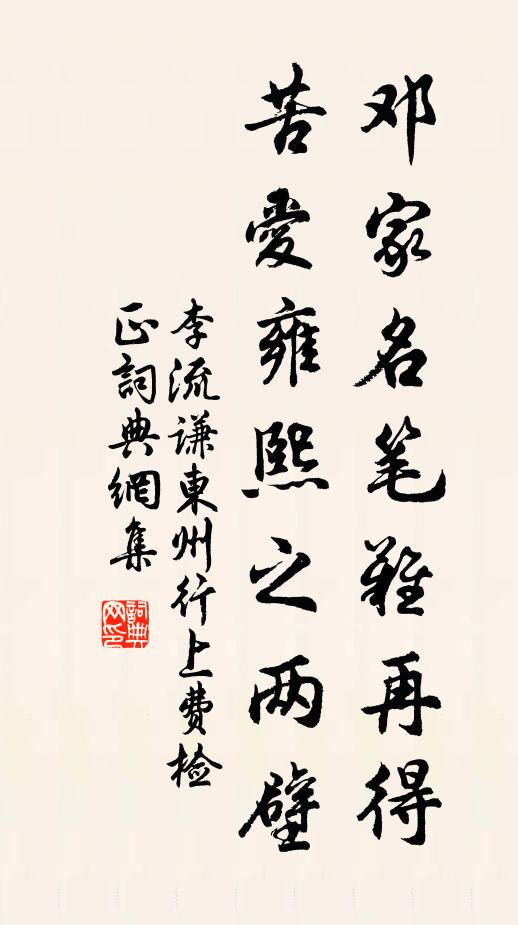 邓家名笔难再得
苦爱雍熙之两壁
李流谦东州行上费检
正词典网集
詞典
网印